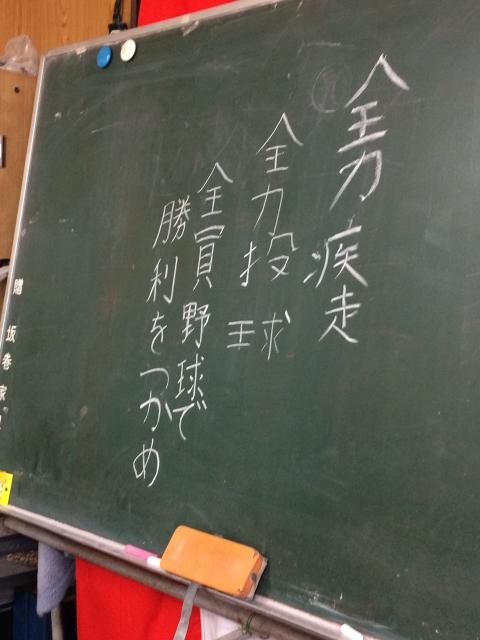 全力疾走
全力投球
全員野球で
勝利をつかめ
贈 坂巻家